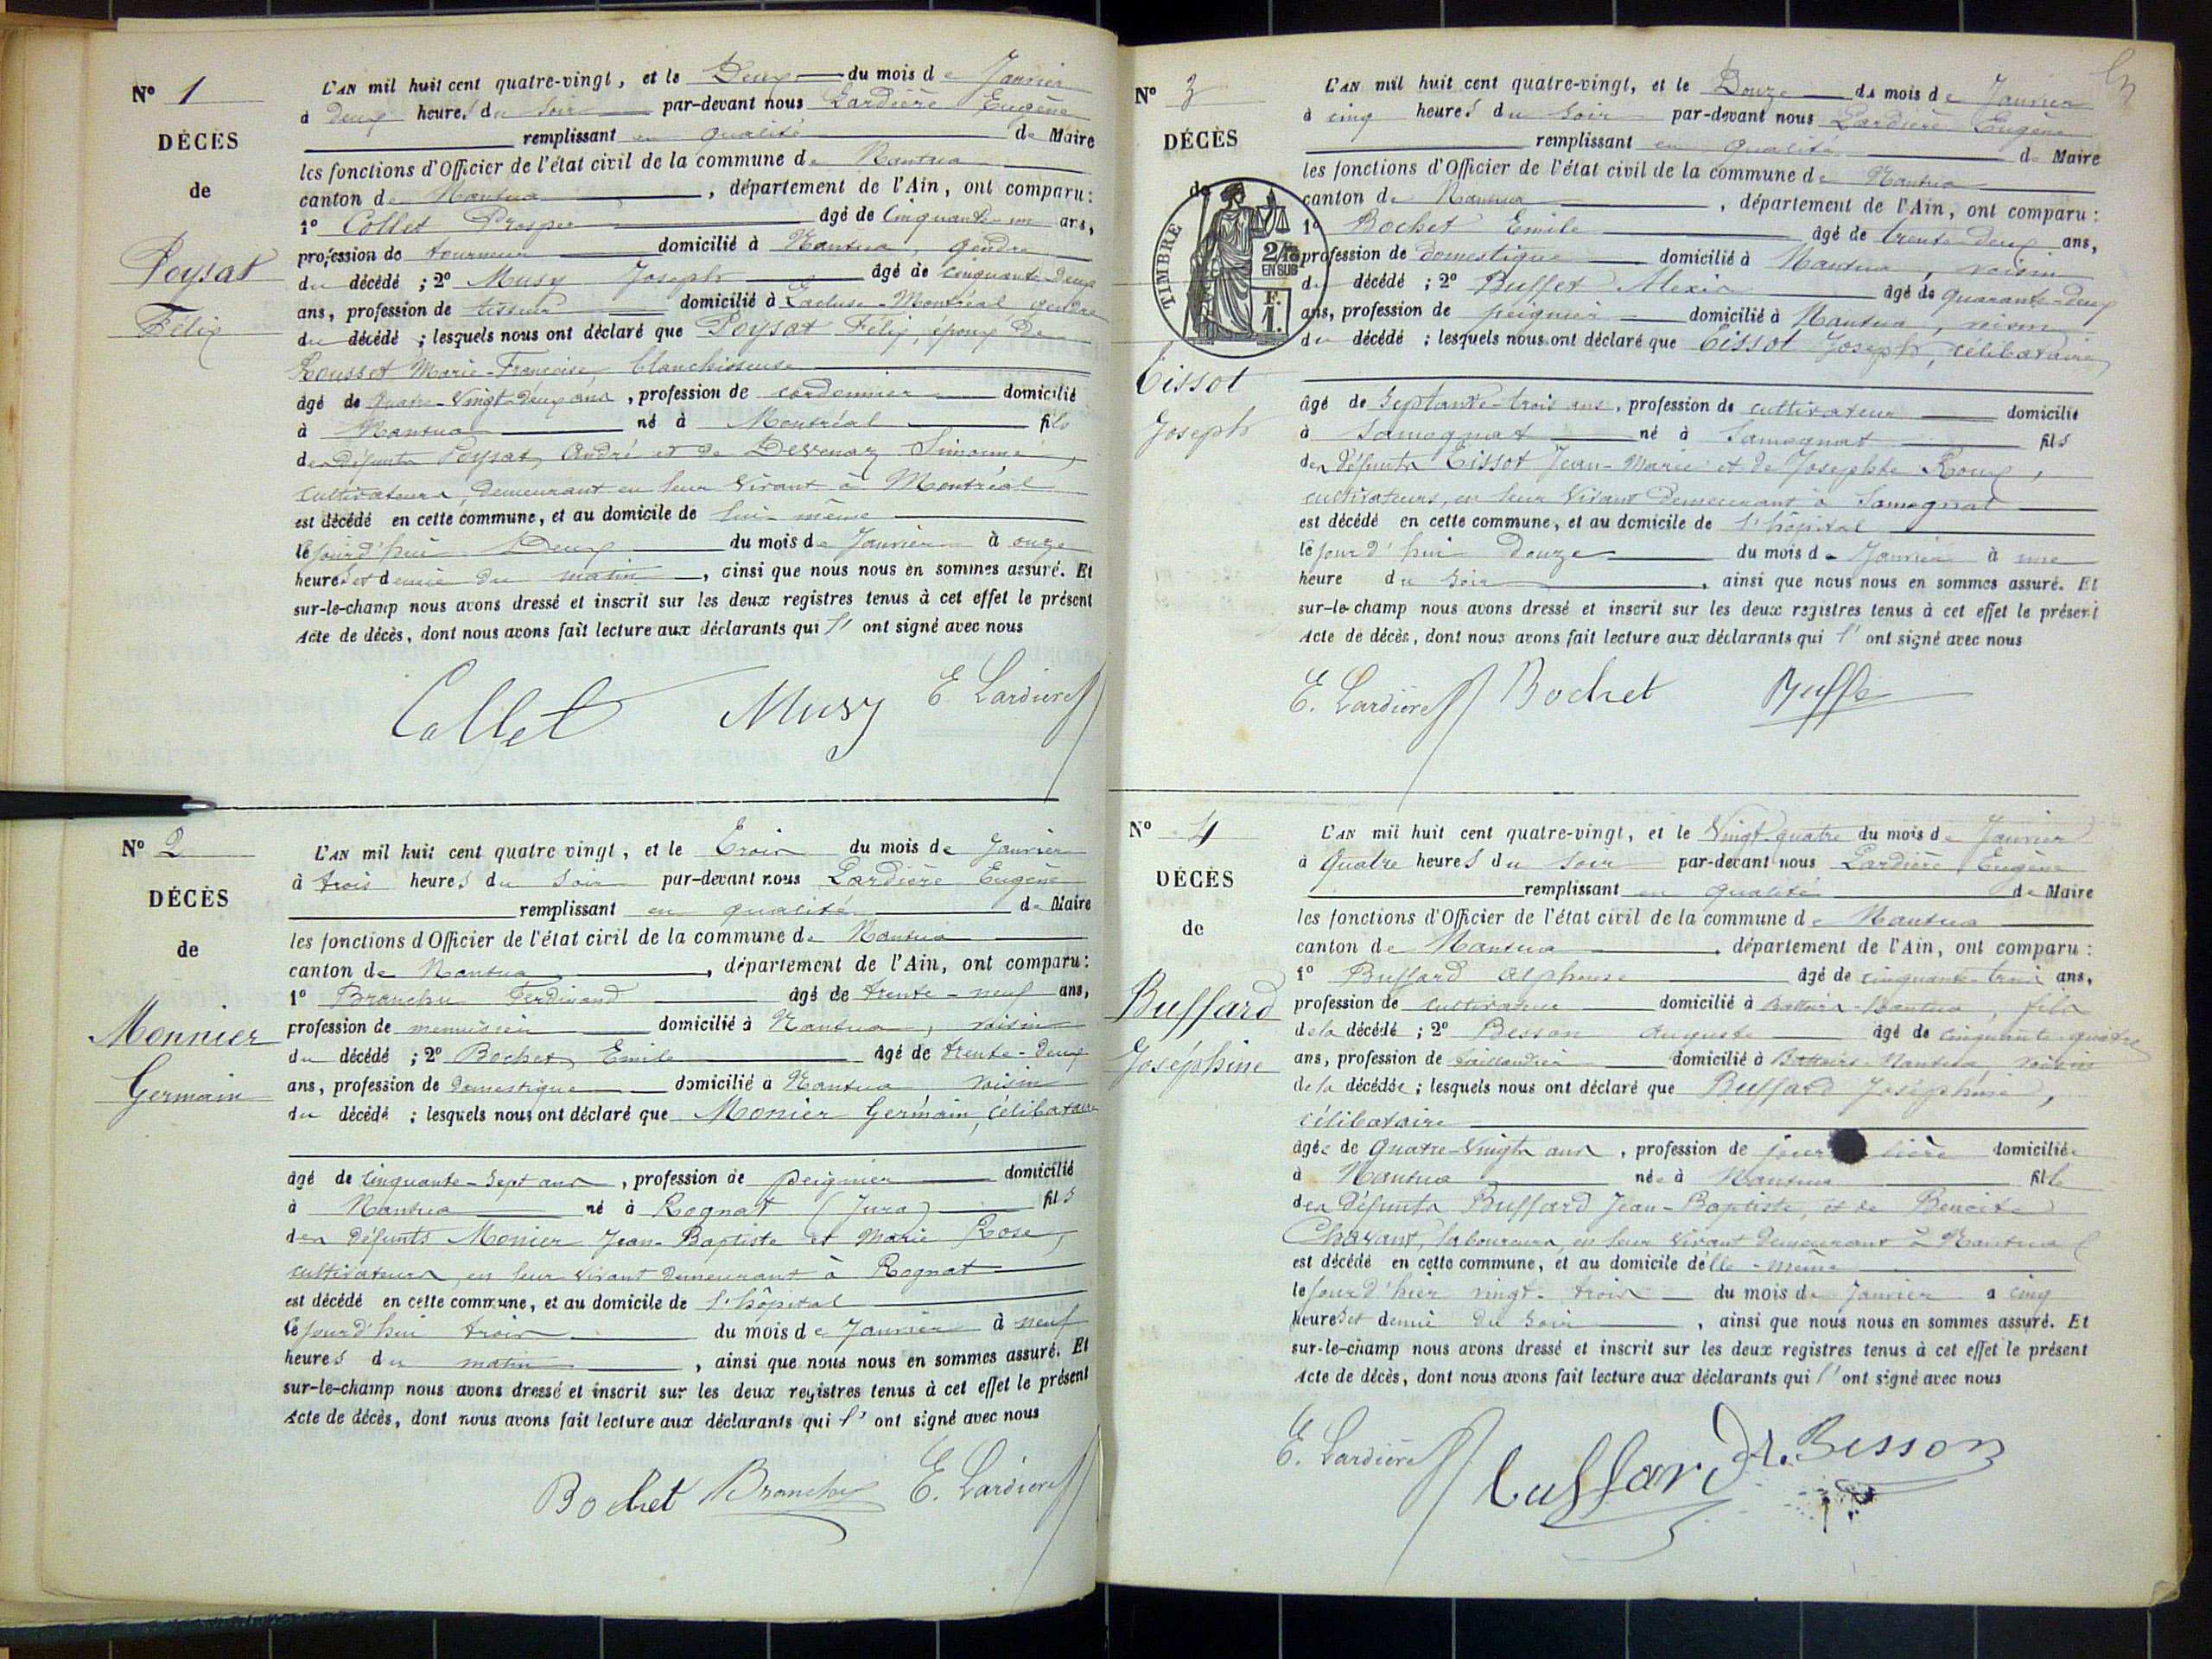 N° 1
DÉCÈS
de
Poysat
Félix
L'AN mil huit cent quatre-vingt, et le Deux du mois de Janvier
à Deux heures du soir par-devant nous Lardière Eugène
remplissant en qualité de Maire
les fonctions d'Officier de l'état civil de la commune de Nantua
canton de Nantua, département de l'Ain, ont comparu:
1° Collet Prosper âgé de Cinquante-un ans,
profession de tourneur domicilié à Nantua, gendre
du décédé ; 2° Musy Joseph âgé de cinquante-Deux
ans, profession de tisseur domicilié à Lacluse-Montréal gendre
du décédé ; lesquels nous ont déclaré que Poysat Félix, époux De
Rousset Marie-Françoise, blanchisseuse
âgé de Quatre-Vingt-Deux ans, profession de cordonnier domicilié
à Nantua né à Montréal fils
des Défunts Poysat, André et de Desvenaz Simonne,
cultivateurs, demeurant en leur vivant à Montréal
est décédé en cette commune, et au domicile de lui-même
le jour d'hui Deux du mois de Janvier à onze
heures et demie du matin, ainsi que nous nous en sommes assuré. Et
sur-le-champ nous avons dressé et inscrit sur les deux registres tenus à cet effet le présent
Acte de décès, dont nous avons fait lecture aux déclarants qui l' ont signé avec nous
Collet Musy E. Lardière
N° 2
DÉCÈS
de
Monnier
Germain
L'AN mil huit cent quatre vingt, et le Trois du mois de Janvier
à trois heures du soir par-devant nous Lardière Eugène
remplissant en qualité de Maire
les fonctions d'Officier de l'état civil de la commune de Nantua
canton de Nantua, département de l'Ain, ont comparu:
1° Branchu Ferdinand âgé de trente-neuf ans,
profession de menuisier domicilié à Nantua, voisin
du décédé ; 2° Bochet Emile âgé de trente-Deux
ans, profession de Domestique domicilié à Nantua voisin
du décédé ; lesquels nous ont déclaré que Monier Germain, célibataire
âgé de Cinquante-Sept ans, profession de peignier domicilié
à Nantua né à Rognat (Jura) fils
des défunts Monier Jean-Baptiste et Marie Rose,
cultivateurs, en leur vivant demeurant à Rognat
est décédé en cette commune, et au domicile de l'hôpital
le jour d'hui trois du mois de Janvier à neuf
heures du matin, ainsi que nous nous en sommes assuré. Et
sur-le-champ nous avons dressé et inscrit sur les deux registres tenus à cet effet le présent
Acte de décès, dont nous avons fait lecture aux déclarants qui l' ont signé avec nous
Bochet Branchu E. Lardière
N° 3
DÉCÈS
de
Tissot
Joseph
TIMBRE
EN SUS
F.
1.
L'AN mil huit cent quatre-vingt, et le Douze du mois de Janvier
à cinq heures du soir par-devant nous Lardière Eugène
remplissant en qualité de Maire
les fonctions d'Officier de l'état civil de la commune de Nantua
canton de Nantua, département de l'Ain, ont comparu:
1° Bochet Emile âgé de trente deux ans,
profession de Domestique domicilié à Nantua, voisin
du décédé ; 2° Buffet Alexis âgé de quarante-deux
ans, profession de peignier domicilié à Nantua, voisin
du décédé ; lesquels nous ont déclaré que Tissot Joseph, célibataire
âgé de Septante-trois ans, profession de cultivateur domicilié
à Samognat né à Samognat fils
des défunts Tissot Jean-Marie et de Josephte Roux,
cultivateurs, en leur Vivant Demeurant à Samognat
est décédé en cette commune, et au domicile de l'hôpital
le jour d'hui douze du mois de Janvier à une
heure du soir, ainsi que nous nous en sommes assuré. Et
sur-le-champ nous avons dressé et inscrit sur les deux registres tenus à cet effet le présent
Acte de décès, dont nous avons fait lecture aux déclarants qui l' ont signé avec nous
E. Lardière Bochet Buffe
N° 4
DÉCÈS
de
Buffard
Joséphine
L'AN mil huit cent quatre-vingt, et le Vingt-quatre du mois de Janvier
à Quatre heures du soir par-devant nous Lardière Eugène
remplissant en qualité de Maire
les fonctions d'Officier de l'état civil de la commune de Nantua
canton de Nantua, département de l'Ain, ont comparu:
1° Buffard Alphonse âgé de cinquante-trois ans,
profession de cultivateur domicilié à Nantua, fils
de la décédé ; 2° Besson Auguste âgé de cinquante-quatre
ans, profession de taillandier domicilié à Nantua, voisin
de la décédée ; lesquels nous ont déclaré que Buffard Joséphine,
célibataire
âgée de Quatre-Vingts ans, profession de jour lière domiciliée
à Nantua née à Nantua fille
des Défunts Buffard Jean-Baptiste, et de Benoîte
Chavant, laboureurs, en leur Vivant Demeurant à Nantua
est décédé en cette commune, et au domicile d'elle-même
le jour d'hier vingt-trois du mois de Janvier à cinq
heures et demie du soir, ainsi que nous nous en sommes assuré. Et
sur-le-champ nous avons dressé et inscrit sur les deux registres tenus à cet effet le présent
Acte de décès, dont nous avons fait lecture aux déclarants qui l' ont signé avec nous
E. Lardière Buffard A. Besson